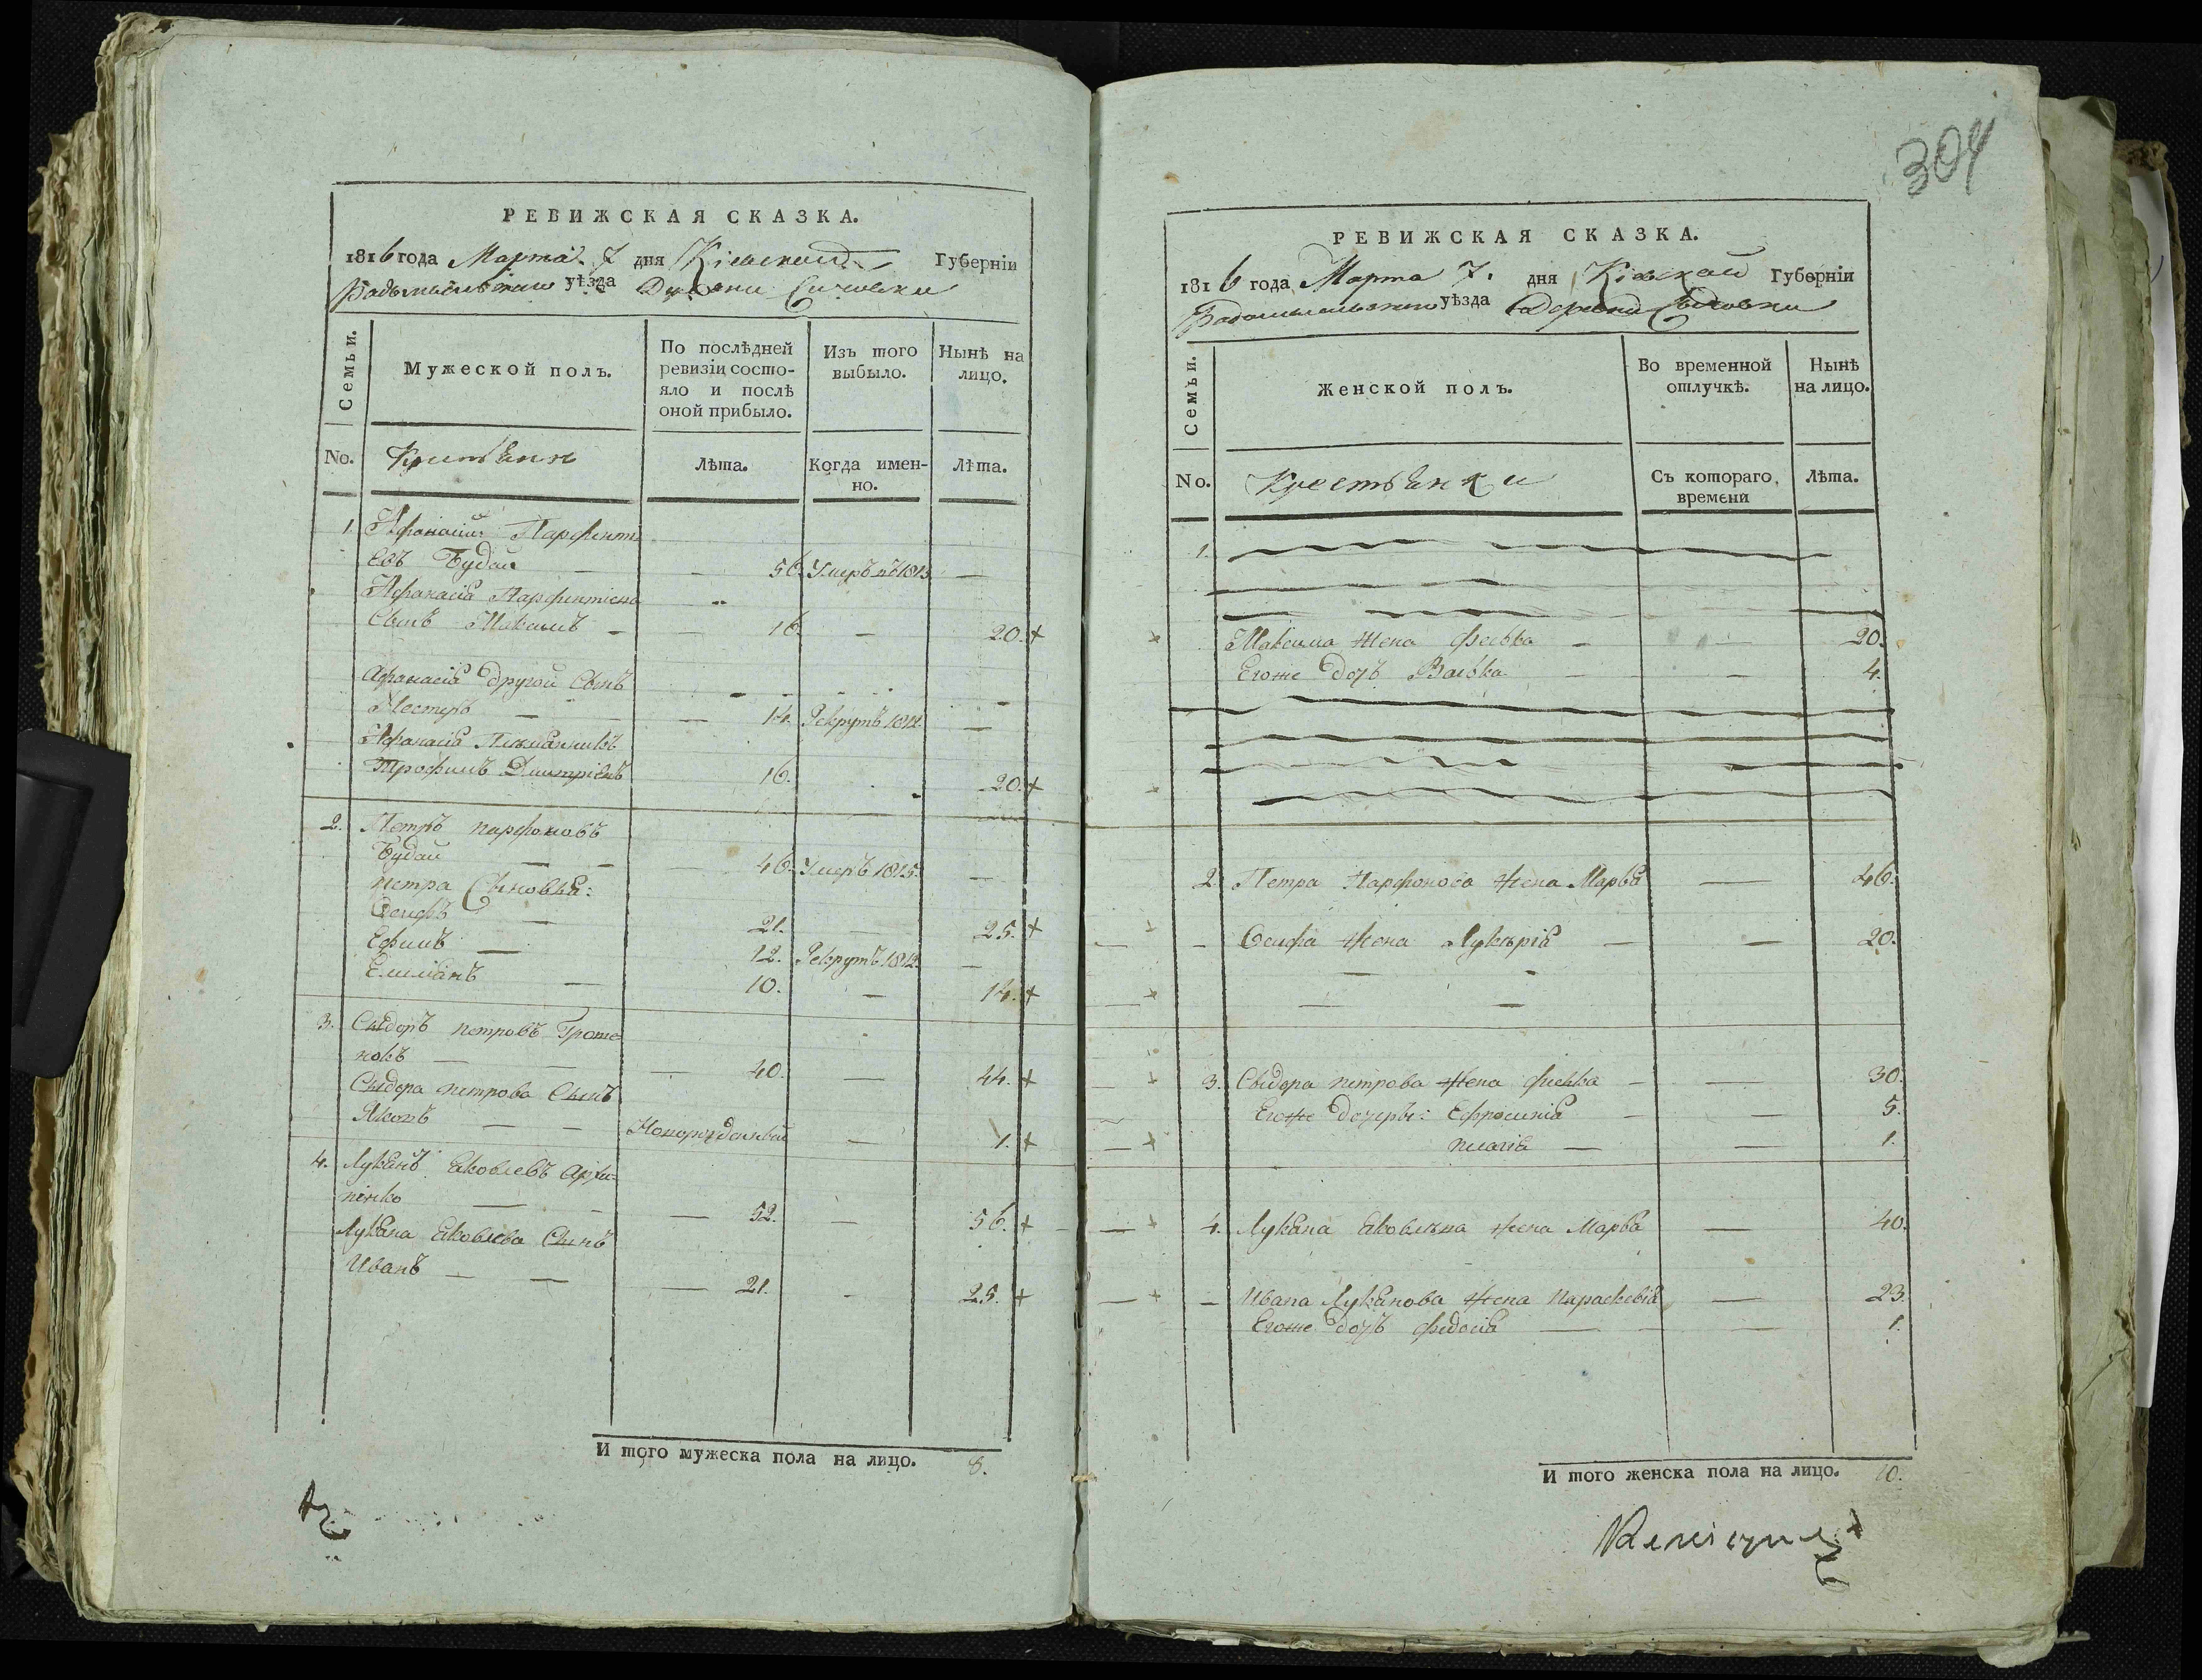 РЕВИЖСКАЯ СКАЗКА.
1816 года Марта 7 дня Кіевской Губерніи
Радомысльскаго уѣзда
Семьи.
Мужеской полъ.
По послѣдней
ревизіи состо-
яло и послѣ
оной прибыло.
Изъ того
выбыло.
Нынѣ на
лицо.
No.
Лѣта.
Когда имен-
но.
Лѣта.
1. Афанасій Парфенті
евъ Будай — — 56. Умеръ въ 1815 —
Афанасія Парфентіева
Сынъ Максимъ — — 16. — 20. +
Афанасія другой Сынъ
Нестеръ — — 14. Рекрутъ 1812. —
Афанасія Племянникъ
Трофимъ Дмитріевъ 16. 20. +
2. Петръ парфоновъ
Будай — — 46. Умеръ 1815. —
петра Сыновья:
Осифъ — 21. — 25. +
Ефимъ — 12. Рекрутъ 1812. —
Емліянъ — 10. — 14. +
3. Сыдоръ петровъ
— — 40. — 44. +
Сыдора петрова Сынъ
Яковъ — — Новорожденный — 1. +
4. Лукянъ Яковлевъ Архи-
пенко — — 52. — 56. +
Лукяна Яковлева Сынъ
Иванъ — — 21. — 25. +
И того мужеска пола на лицо. 8.
304
РЕВИЖСКАЯ СКАЗКА.
1816 года Марта 7. дня Кіевской Губерніи
Радомысльскаго уѣзда Деревни
Семьи.
Женской полъ.
Во временной
отлучкѣ.
Нынѣ
на лицо.
No.
Крестьянки
Съ котораго
времени
Лѣта.
1.
Максима Жена Феська — — 20.
Егоже дочь Васька — — 4.
2. Петра Парфонова Жена Марья — 46.
— Осифа Жена Лукерія — — 20.
3. Сыдора петрова Жена — — 30.
Егоже дочеры: Ефросинія — — 5.
пелагія — — 1.
4. Лукяна Яковлева Жена Марья — 40.
— Ивана Лукянова Жена Параскевія — 23.
Егоже дочь Федосія — — 1.
И того женска пола на лицо. 10.